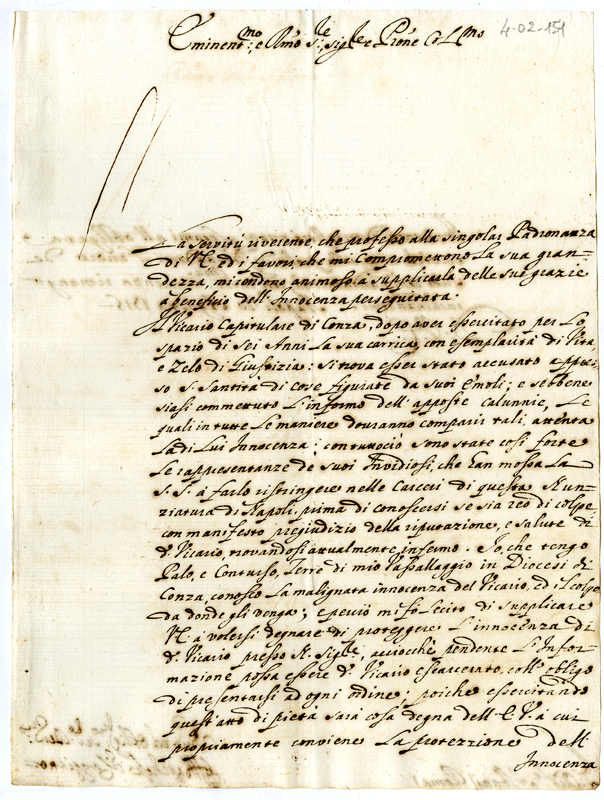 4-02-151
Eminent.mo, e Rmo Sig.re, Sig.re e Prone Col.mo
La servitù riverente, che professo alla singolar Padronanza
di V.E. ed i favori, che mi Comprometteno La sua gran=
dezza, mi rendono animoso à supplicarla delle sue grazie
à beneficio dell'Innocenza perseguitata.
Il Vicario Capitulare di Conza, dopo aver essercitato per Lo
spazio di Sei Anni La sua carrica, con esemplarità di Vita
e Zelo di Giustizia: si trova esser stato accusato appres=
so S. Santità di Cose figurate da suoi Emoli; e sebbene
siasi commettuto L'informo dell'apposte Calunnie, Le
quali in tutte Le maniere douranno comparir tali, attenta
La di Lui Innocenza; contuttociò sono state così forte
Le rappresentanze de suoi Invidiosi, che han mossa La
S.S. à farlo ristringere nelle Carceri di questa Nun=
ziatura di Napoli, prima di conoscersi se sia reo di colpe,
con manifesto pregiudizio della riputazione, e salute di
d.o Vicario, trovandosi attualmente infermo. Io, che tengo
Palo, e Contursio, Terre di mio Vassallaggio in Diocesi di
Conza, conosco La malignata innocenza del Vicario, ed il colpo
da donde gli venga; e perciò mi fò Lecito di supplicare
V.E. à volersi degnare di proteggere L'innocenza di
d.o Vicario presso N. Sig.re, acciocchè pendente L'Infor=
mazione possa essere d.o Vicario escarcerato, coll'obligo
di presentarsi ad ogni ordine; poiche essercitando
quest'atto di pietà sarà cosa degna dell'E.V. à cui
propriamente conviene La protezzione dell'
Innocenza